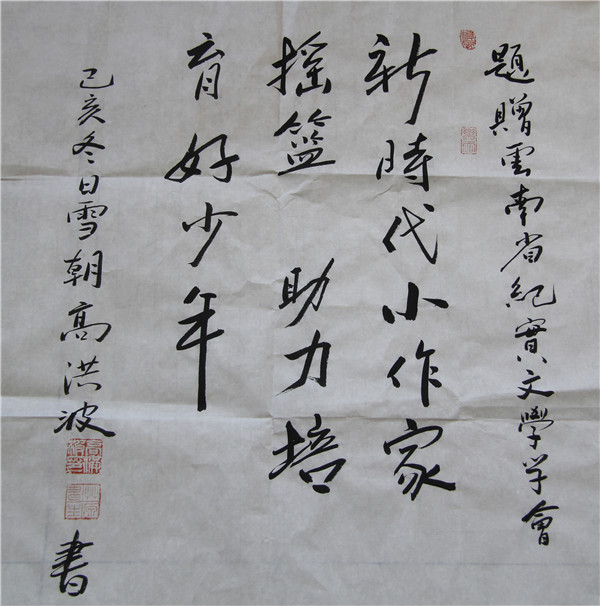 題贈雲南省紀實文學学會
新時代小作家
摇籃 助力培
育好少年
己亥冬日雪朝高洪波
書